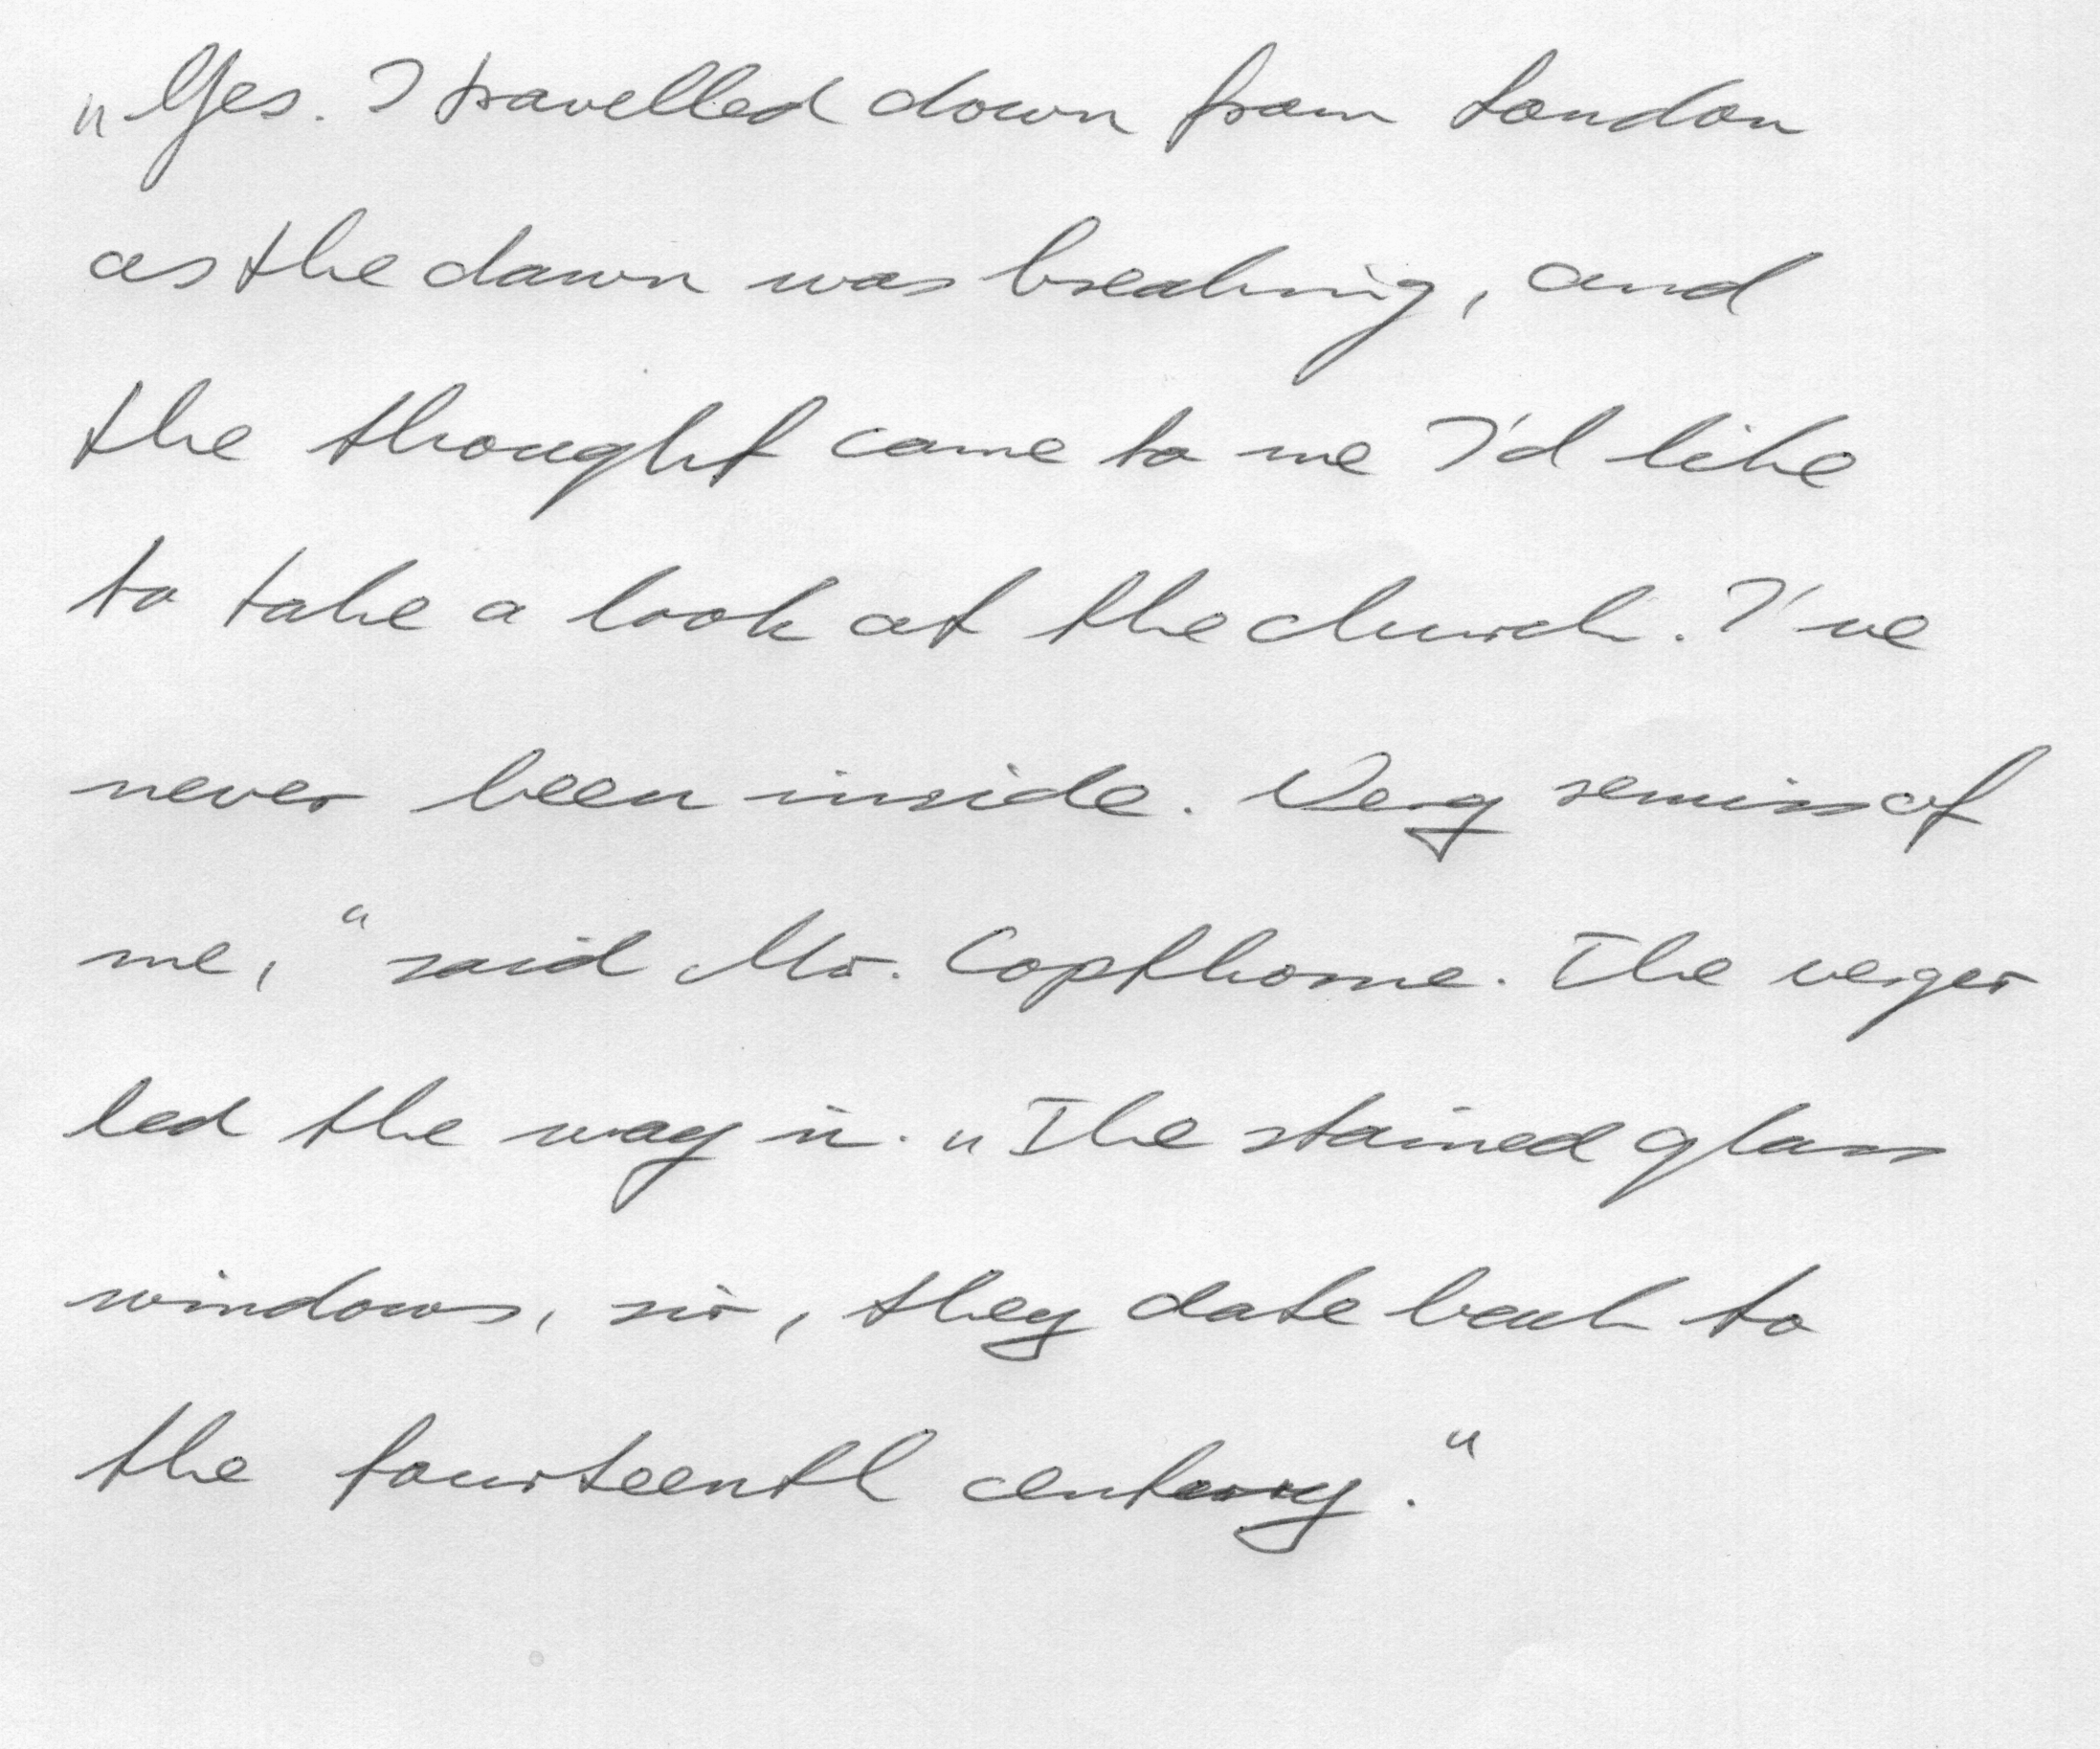 „Yes. I travelled down from London
as the dawn was breaking, and
the thought came to me I'd like
to take a look at the church. I've
never been inside. Very remiss of
me,“ said Mr. Copthorne. The verger
led the way in. „The stained glass
windows, sir, they date back to
the fourteenth century.“